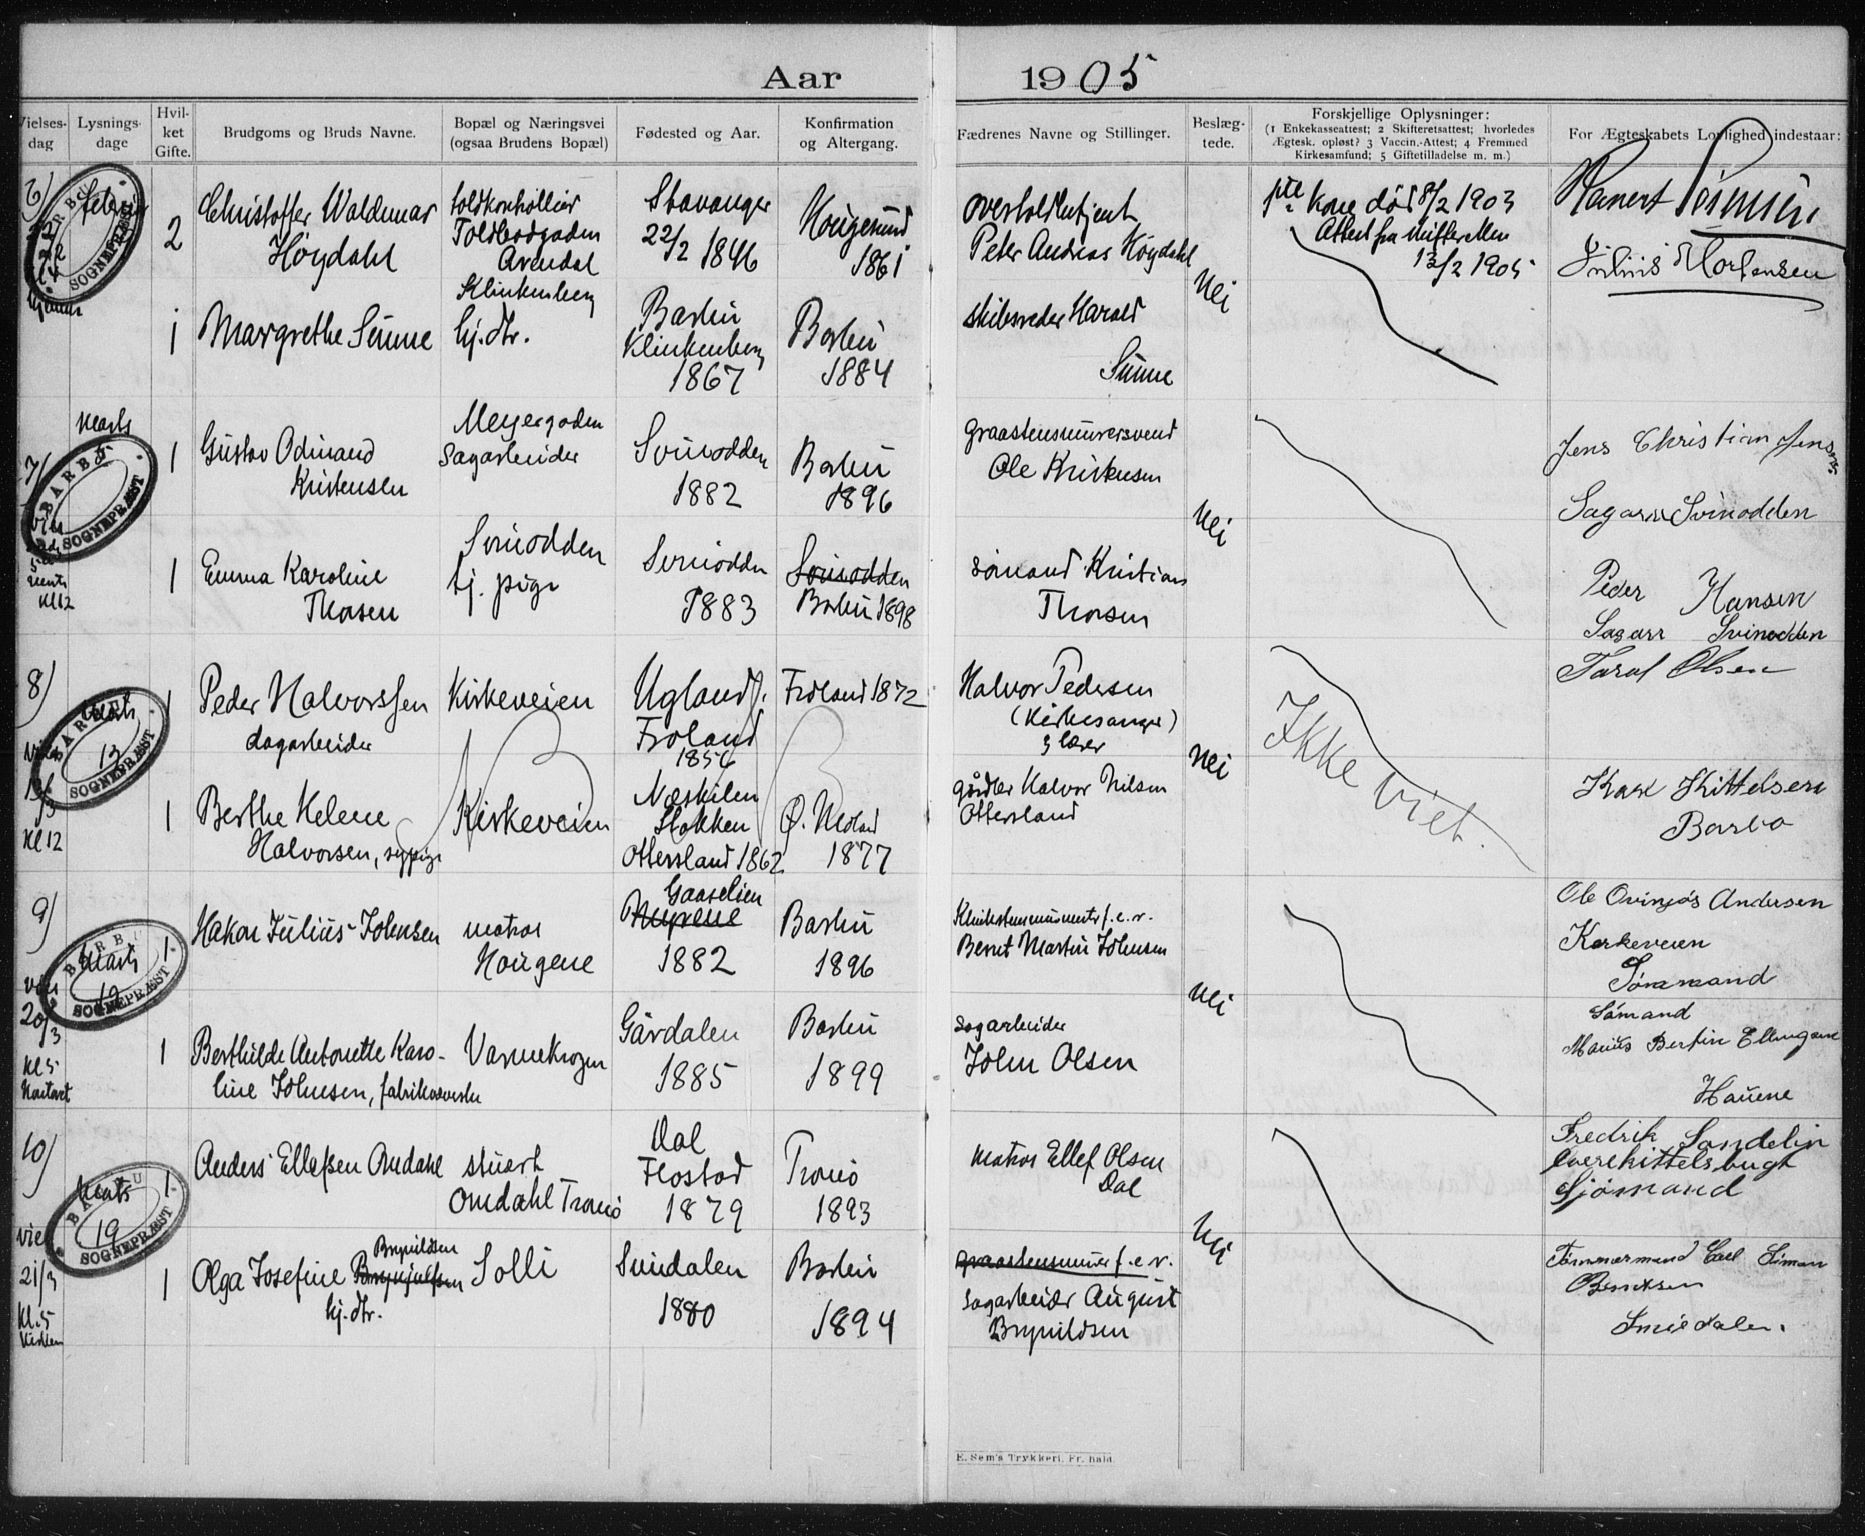 Aar 1905
Vielses-dag
Lysnings-dage
Hvil-ket Gifte.
Brudgoms og Bruds Navne.
Bopæl og Næringsvei (ogsaa Brudens Bopæl)
Fødested og Aar.
Konfirmation og Altergang.
Fædrenes Navne og Stillinger.
Beslæg-tede.
Forskjellige Oplysninger:
(1 Enkekasseattest; 2 Skifteretsattest; hvorledes
Ægtesk. opløst? 3 Vaccin.-Attest; 4 Fremmed
Kirkesamfund; 5 Giftetilladelse m. m.)
For Ægteskabets Lovlighed indestaar:
6)
2
Christoffer Waldemar
Høydahl
toldkontrollør
Toldbodgaden
Arendal
Stavanger
22/2 1846
Hougesund
1861
overtoldbetjent
Peter Andreas Høydahl
Nei
kone død 8/2 1903
Attest fra skifteretten
13/2 1905
Julius Mortensen
1
Margrethe Sunne
Klinkenberg
hj. dtr.
Barbu
Klinkenberg
1867
Barbu
1884
skibsreder Harald
Sunne
7)
Marts
BARBU
SOGNEPRÆST
1
Gustav Odmand
Kristensen
Meyergaden
Sagarbeider
Svinodden
1882
Barbu
1896
Ole Kristensen
Nei
Jens Christian Jensen
Sagarb Svinodden
Kl 12
1
Emma Karoline
Thorsen
Svinodden
tj. pige
Svinodden
1883
Svinodden
Barbu 1898
sømand Kristian
Thorsen
Peder Hansen
Sagarr Svinodden
8)
Marts
13
BARBU
SOGNEPRÆST
1
Peder Halvorssen
dagarbeider
Kirkeveien
Ugland
Froland
Froland 1872
Halvor Pedersen
(Kirkesanger)
& lærer
Nei
Ikke viet.
Tarol Olsen
Kl 12
1
Berthe Helene
Halvorsen, sypige
Kirkeveien
Næskilen
Stokken
Ottersland 1862
Ø. Moland
1877
gårdbr Halvor Nilsen
Ottersland
Kittelsen
Barbo
9)
Marts
19
BARBU
SOGNEPRÆST
1
Hakon Julius Johnsen
matros
Hougene
Gaaselien
Myrene
1882
Barbu
1896
Bernt Martin Johnsen
Nei
Andersen
Kerkeveien
Tømmand
viet
20/3
Kl 5
Kontoret
1
Berthilde Antonette Karo-
line Johnsen, fabrikarbeider
Varmekrogen
Gårdalen
1885
Barbu
1899
sagarbeider
John Olsen
Sømand
Marius Bertin Ellingsen
Hauene
10)
Marts
19
BARBU
SOGNEPRÆST
1
Anders Ellefsen Omdahl
stuart
Omdahl Tromø
Dal
Flostad
1879
Tromø
1893
matros Ellef Olsen
Dal
Nei
Fredrik Sandelin
overkittelsbugt
Sjømand
viet
21/3
Kl. 5
Kirken
1
Olga Josefine Brynjulfsen
Brynildsen
hj. dtr.
Solli
Sundalen
1880
Barbu
1894
graastensmurer f. e. v.
sagarbeider August
Brynildsen
Tømmermand Carl Simon
Bentsen
E. Sem's Trykkeri, Fr.hald.